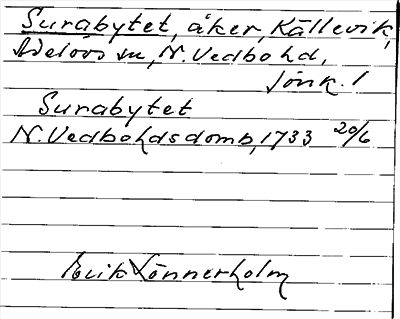 Surabytet, åker, Källevik,
Adelövs sn, N. Vedbo hd,
Jönk. l
Surabytet
N. Vedbo hds domb, 1733 20/6
Erik Lönnerholm